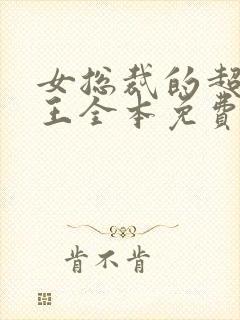 女总裁的超
王全本免费
肯不肯